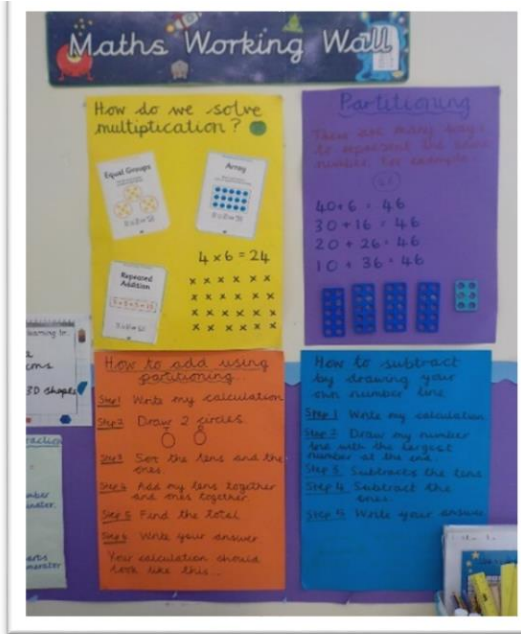 Maths Working Wall
How do we solve
multiptication?
Equal Groups
Array
Repeated
Addition
4 x 6 = 24
x x x x x x
x x x x x x
x x x x x x
x x x x x x
Partitioning
There are many ways
to represent the same
number. For example
46
40+6 = 46
30+16 = 46
20 + 26 = 46
10 + 36 = 46
How to add using
partitioning...
Step 1 Write my calculation
Step 2 Draw 2 circles.
Step 3 Sor the tens and the
ones.
Step 4 Add my tens together
and ones together.
Step 5 Find the total
Step 6 Write your answer
Your calculation should
look like this...
How to subtract
by drawing your
own number line
Step 1 Write my calculation
Step 2 Draw my number
line with the largest
number at the end.
Step 3 Subtracts the tens
Step 4 Subtract the
ones.
Write your answer
3D shapes